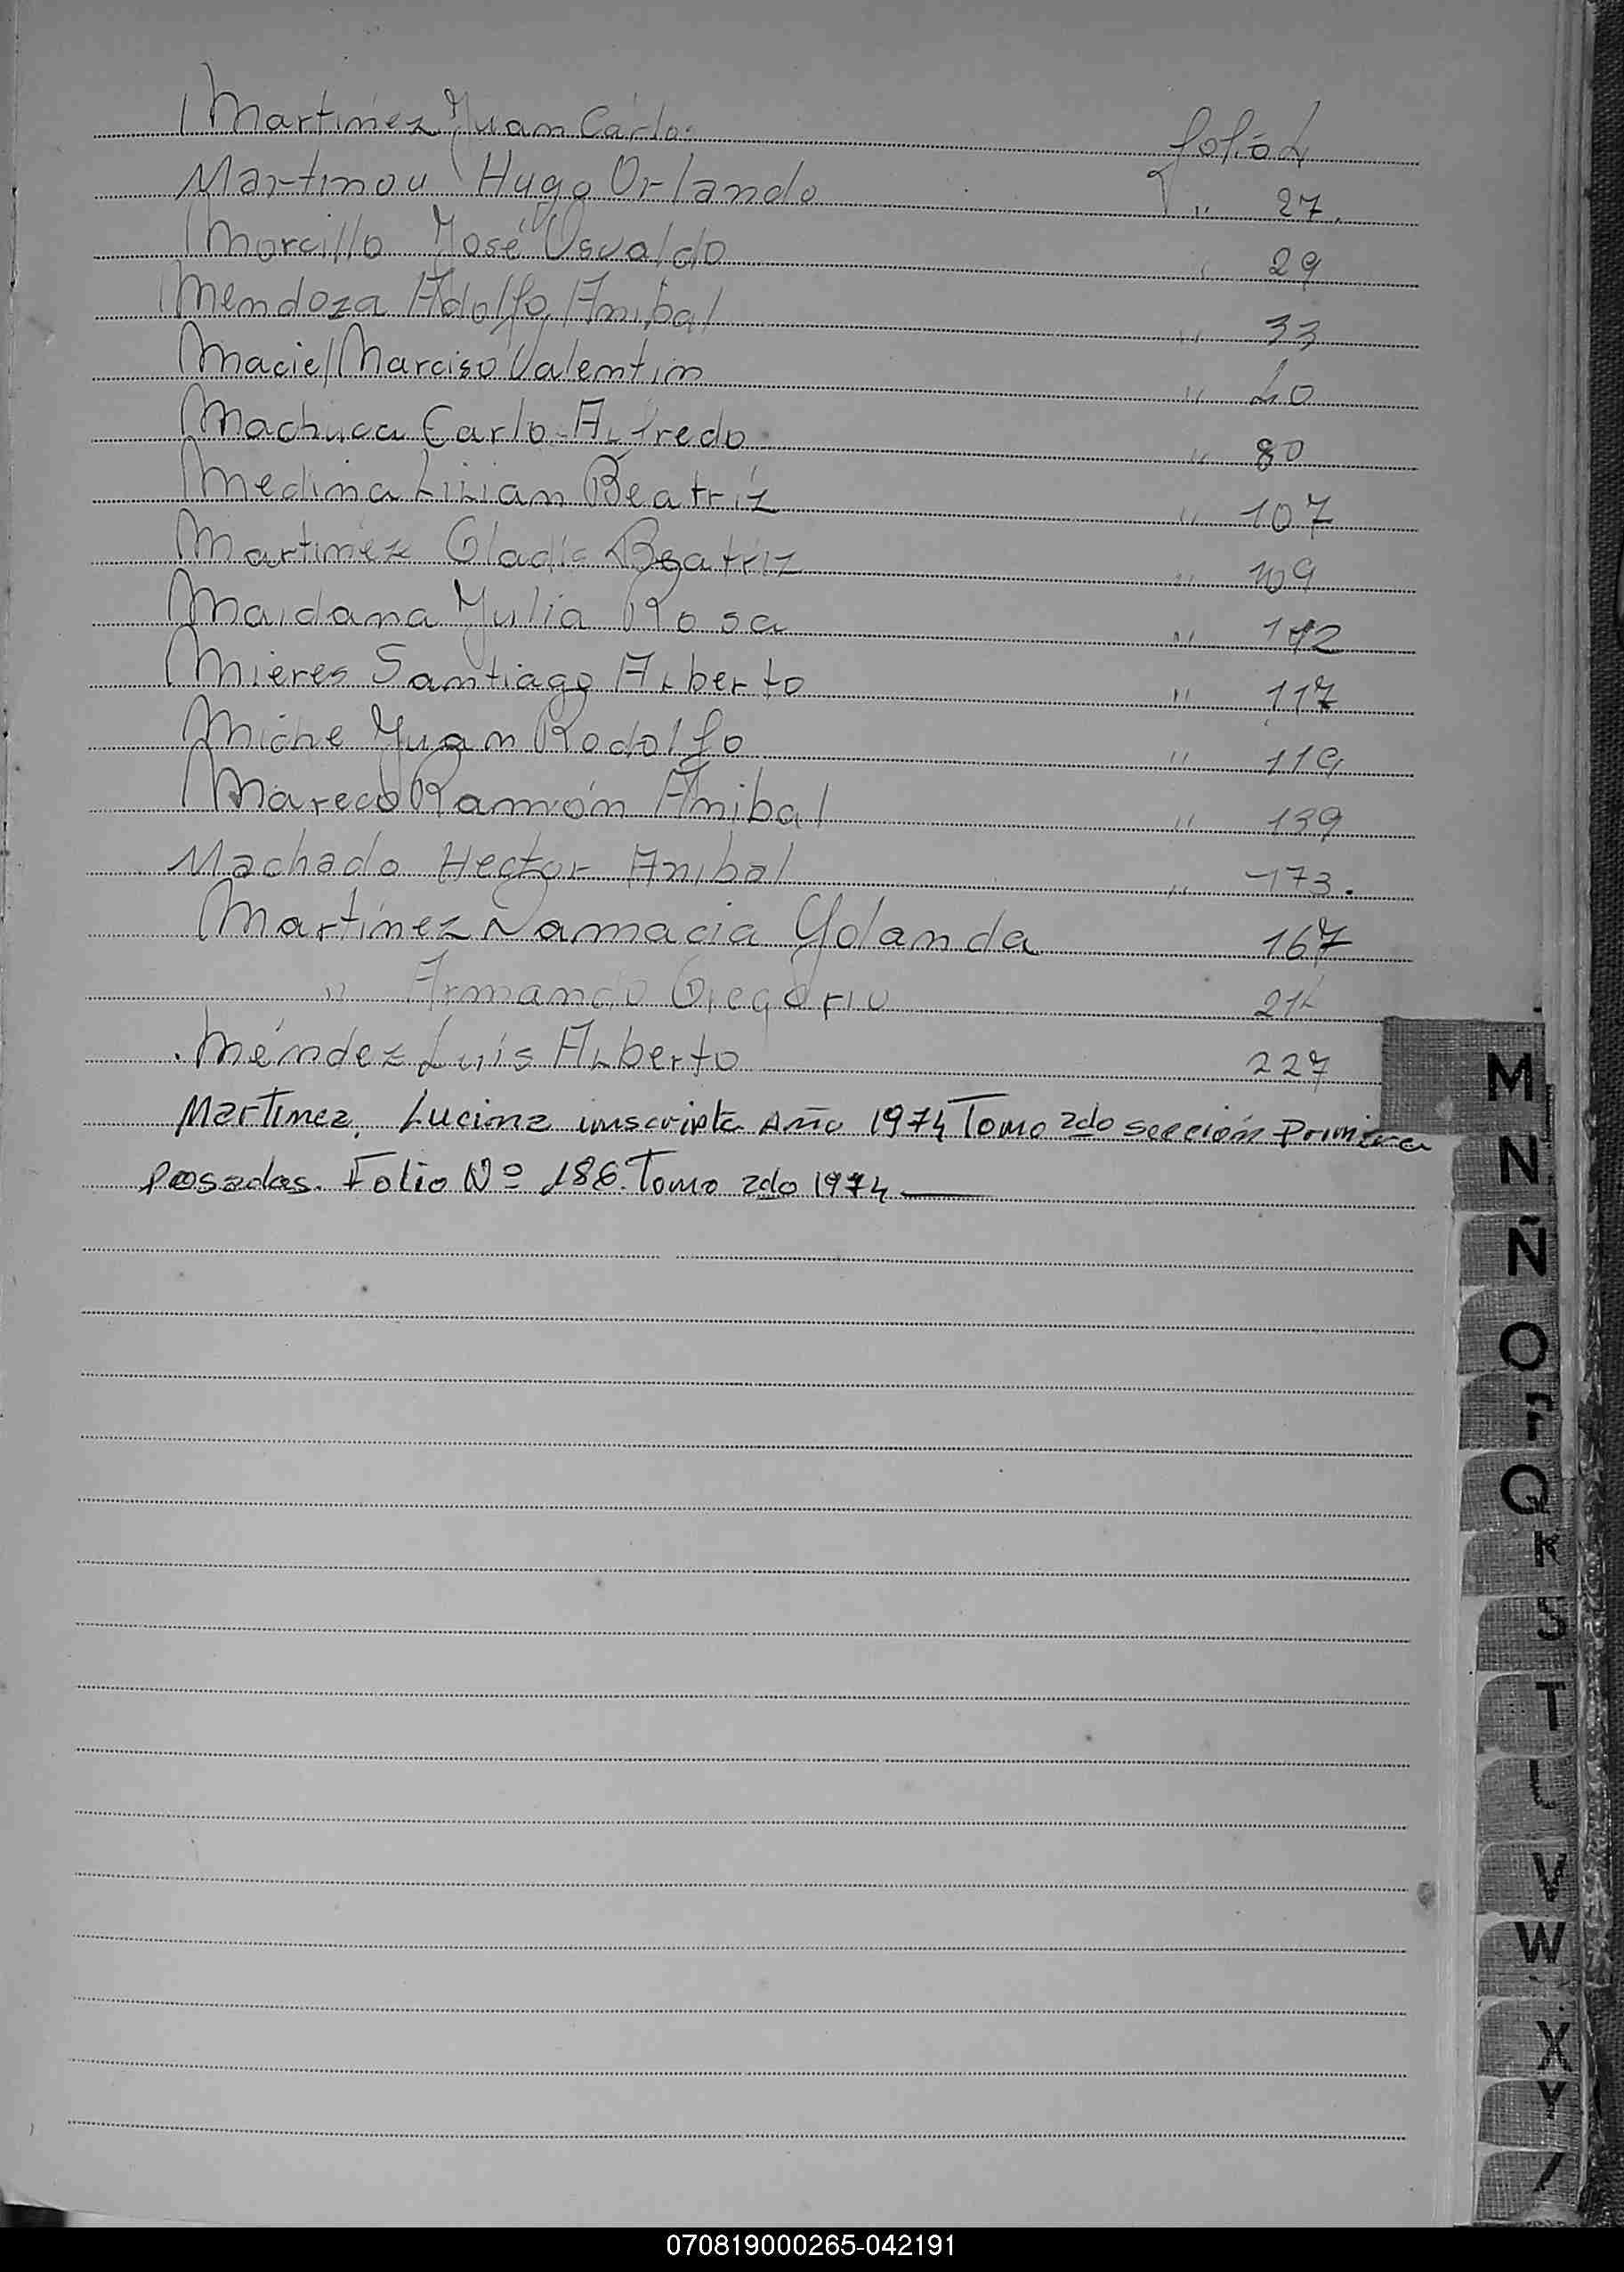 Martinez Juan Carlos folio 4
Martinou Hugo Orlando " 27.
Morcillo José Osvaldo " 29
Mendoza Adolfo Anibal " 33
Maciel Marciso Valentin " 40
Machuca Carlo Alfredo " 80
Medina Lilian Beatriz " 107
Martinez Gladis Beatriz " 109
Maidana Julia Rosa " 112
Mieres Santiago Alberto " 117
Miche Juan Rodolfo " 119
Mareco Ramón Anibal " 139
Machado Hector Anibal " 173.
Martinez Damacia Yolanda 167
" Armando Gregorio 214
Méndez Luis Alberto 227
Martinez, Lucina inscripta Año 1974 Tomo 2do sección Primera
Posadas. Folio Nº 186. Tomo 2do 1974
M
N
Ñ
O
P
Q
R
S
T
V
W
X
Y
070819000265-042191